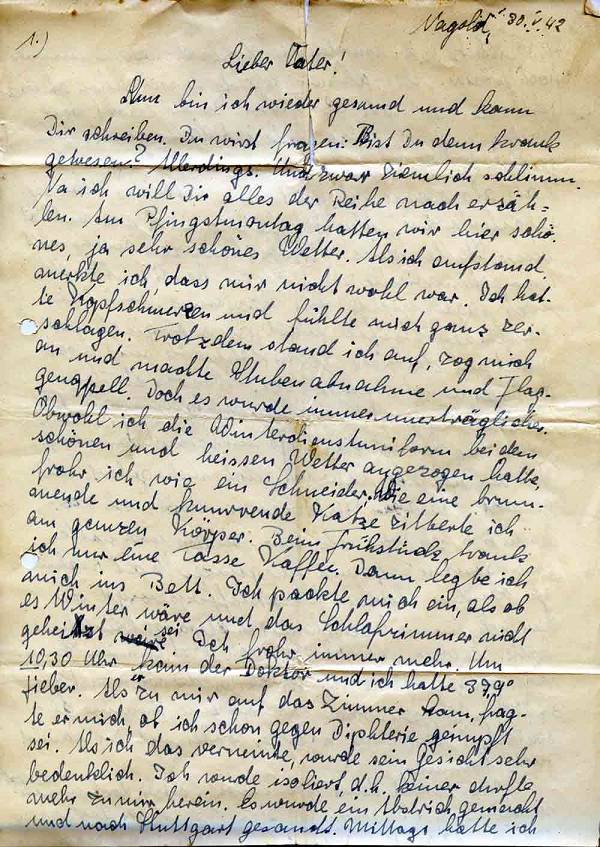 1.)
Nagold, 30.V.42
Lieber Vater!
Nun bin ich wieder gesund und kann
Dir schreiben. Du wirst fragen: Bist Du denn krank
gewesen? Allerdings. Und zwar ziemlich schlimm.
Na ich will Dir alles der Reihe nach erzäh-
len. Am Pfingstmontag hatten wir hier schö-
nes, ja sehr schönes Wetter. Als ich aufstand,
merkte ich, dass mir nicht wohl war. Ich hat-
te Kopfschmerzen und fühlte mich ganz zer-
schlagen. Trotzdem stand ich auf, zog mich
an und machte Stubenabnahme und Flag-
genappell. Doch es wurde immer unerträglicher.
Obwohl ich die Winterdienstuniform bei dem
schönen und heissen Wetter angezogen hatte,
frohr ich wie ein Schneider. Wie eine brum-
mende und knurrende Katze zitterte ich
am ganzen Körper. Beim Frühstück trank
ich nur eine Tasse Kaffee. Dann legte ich
mich ins Bett. Ich packte mich ein, als ob
es Winter wäre und das Schlafzimmer nicht
geheitzt sei. Ich frohr immer mehr. Um
10,30 Uhr kam der Doktor und ich hatte 37,9°
Fieber. Als er zu mir auf das Zimmer kam, frag-
te er mich, ob ich schon gegen Diphterie geimpft
sei. Als ich das verneinte, wurde sein Gesicht sehr
bedenklich. Ich wurde isoliert, d.h. keiner durfte
mehr zu mir herein. Es wurde ein Abstrich gemacht
und nach Stuttgart gesandt. Mittags hatte ich